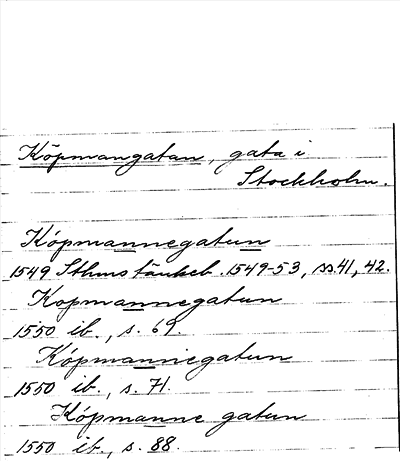 Köpmangatan, gata i
Stockholm.
Kópmannegatun
1549 Sthms tänkeb. 1549-53, ss. 41, 42.
Kopmannegatun
1550 ib., s. 69.
Kópmannegatun
1550 ib., s. 71.
Kópmanne gatun
1550 ib., s. 88.